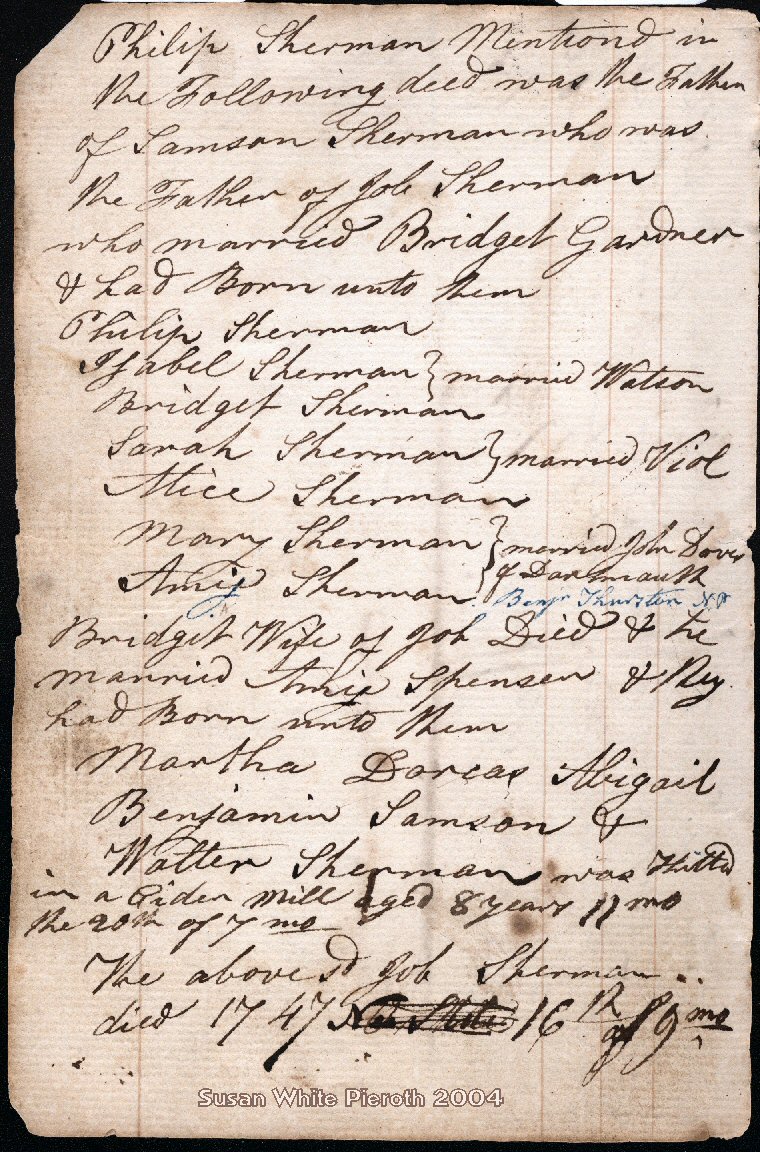 Philip Sherman Mentiond in
the Following deed was the Father
of Samson Sherman who was
the Father of Job Sherman
who married Bridget Gardner
& had Born unto them
Philip Sherman
Isabel Sherman } married Watson
Bridget Sherman
Sarah Sherman } married Viol
Alice Sherman
Mary Sherman } married John Dover
of Dartmouth
Amij Sherman
Benjn Thurston
Bridget Wife of Job Died & he
married Amij Spenser & they
had Born unto them
Martha Dorcas Abigail
Benjamin Samson &
Walter Sherman was Killd
in a Cider Mill aged 8 years 11 mo
the 20th of 7 mo
The above sd Job Sherman
died 1747 16th of 9 mo
Susan White Pieroth 2004